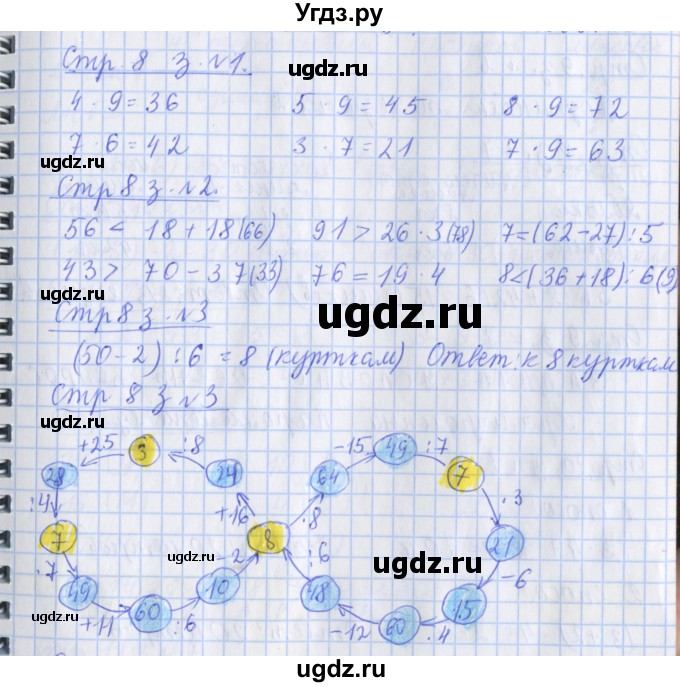 Угдз.ру
Стр. 8 з. №1.
ugdz.ru
4 · 9 = 36 5 · 9 = 45 8 · 9 = 72
7 · 6 = 42 3 · 7 = 21 7 · 9 = 63
ugdz.ru ugdz.ru
Стр 8 з. №2.
56 < 18 + 18 (66) 91 > 26 · 3 (78) 7 = (62 - 27) : 5
43 > 70 - 37 (33) 76 = 19 · 4 8 < (36 + 18) : 6 (9)
Стр 8 з. №3
ugdz.ru
(50 - 2) : 6 = 8 (курткам) Ответ: к 8 курткам
Стр 8 з №3
+25 3 :8 -15 49 :7
28 24 64 7
:4 +16 ·8 ·3
7 8 21
ugdz.ru ugdz.ru
·7 -2 :6 -6
49 60 10 48 60 15
+11 :6 -12 ·4
ugdz.ru ugdz.ru
ugdz.ru